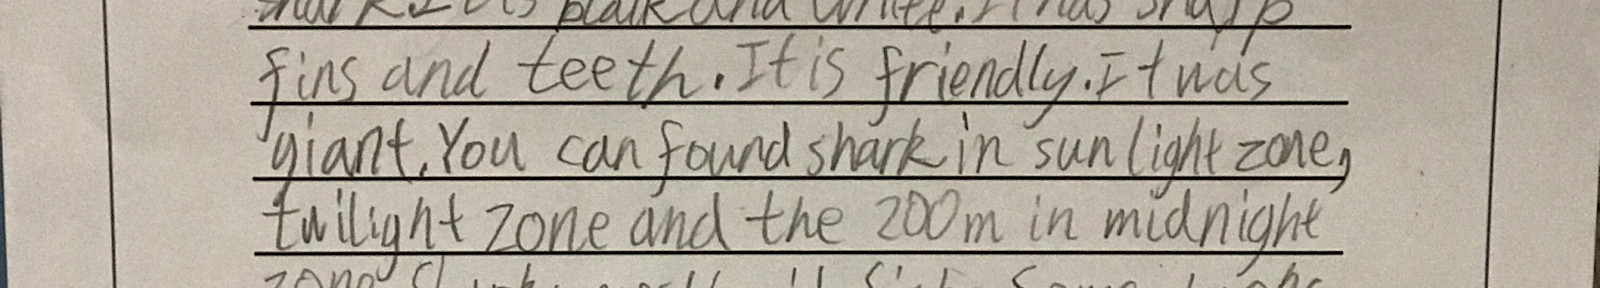 shark. It is blaik and white. It has sharp
fins and teeth. It is friendly. It was
giant. You can found shark in sun light zone,
twilight zone and the 200m in midnight
zone